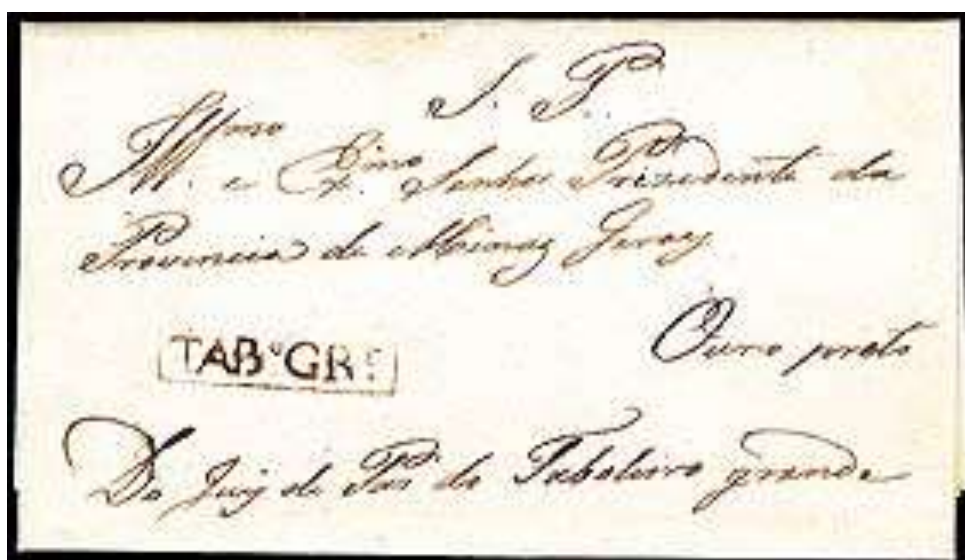 S. P.
Illmo e Exmo Senhor Prezidente da
Provincia de Minas Geraes
Ouro preto
TABº GRE
Do Juiz de Pas do Taboleiro grande